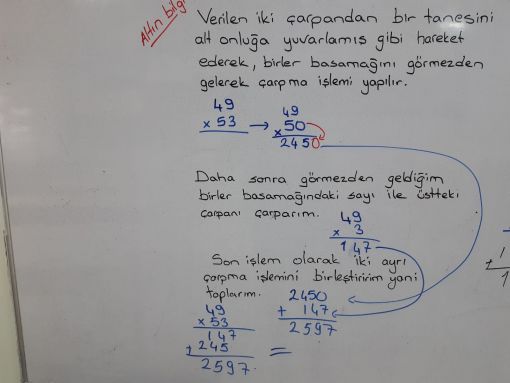 Altın bilgi
Verilen iki çarpandan bir tanesini
alt onluğa yuvarlamış gibi hareket
ederek, birler basamağını görmezden
gelerek çarpma işlemi yapılır.
49 49
x 53 → x 50
2450
Daha sonra görmezden geldiğim
birler basamağındaki sayı ile üstteki
çarpanı çarparım. 49
x 3
147
Son işlem olarak iki ayrı
çarpma işlemini birleştiririm yani
toplarım. 2450
49 + 147
x 53 2597
147
+ 245 =
2597